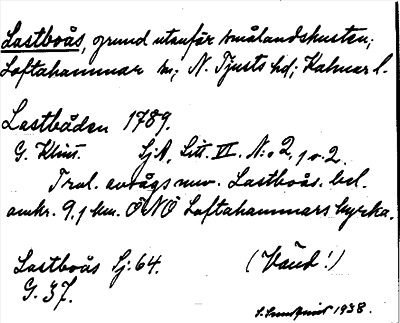 Lastboås, grund utanför smålandskusten;
Loftahammar sn; N. Tjusts hd; Kalmar l.
Lastbåden 1789.
G. Klint. SjA, Litt. VI. N:o 2, 1 o. 2.
Trol. avsågs nuv. Lastboås bel.
omkr. 9,1 km. ÖNÖ Loftahammars kyrka.
Lastboås Sj: 64. (Vänd!)
G. 37.
1938.